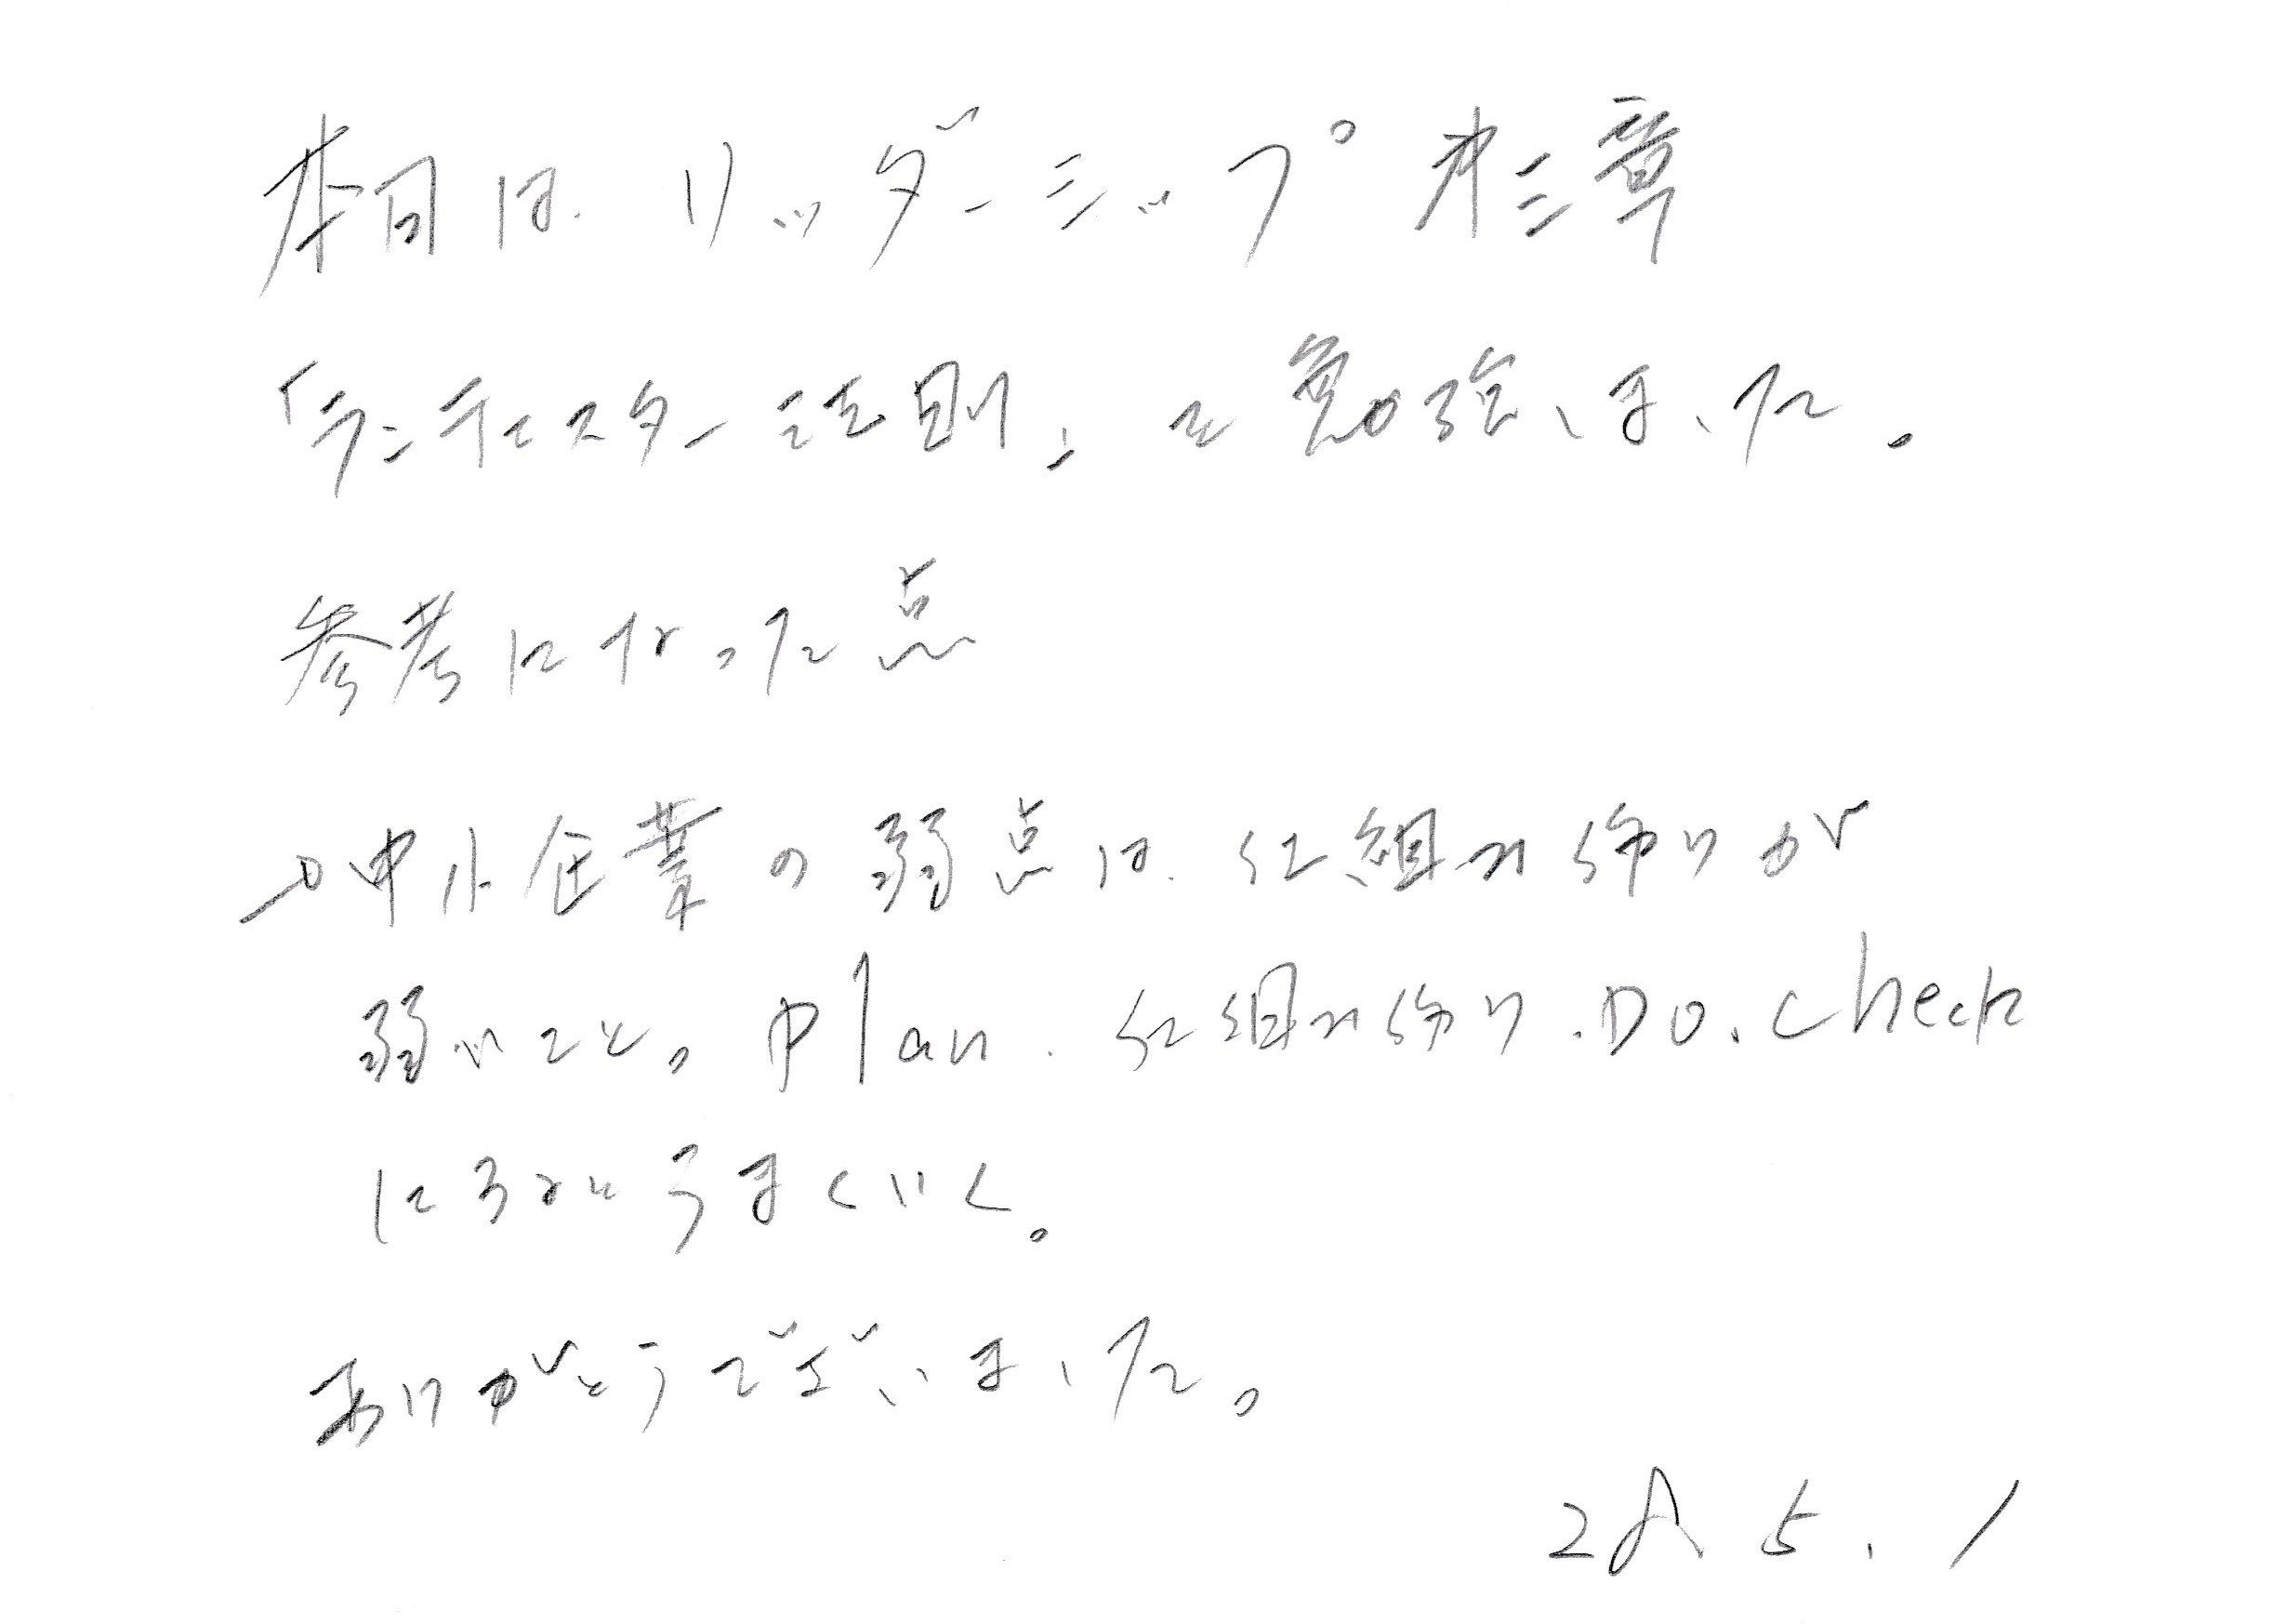 本日は、リッダーシップ 第三章
「ランチェスター法則」を勉強しました。
参考になった点
→中小企業の弱点は、仕組み作りが
弱いこと。Plan. 仕組み作り.Do.Check
にるとうまくいく。
ありがとうございました。
28.5.1